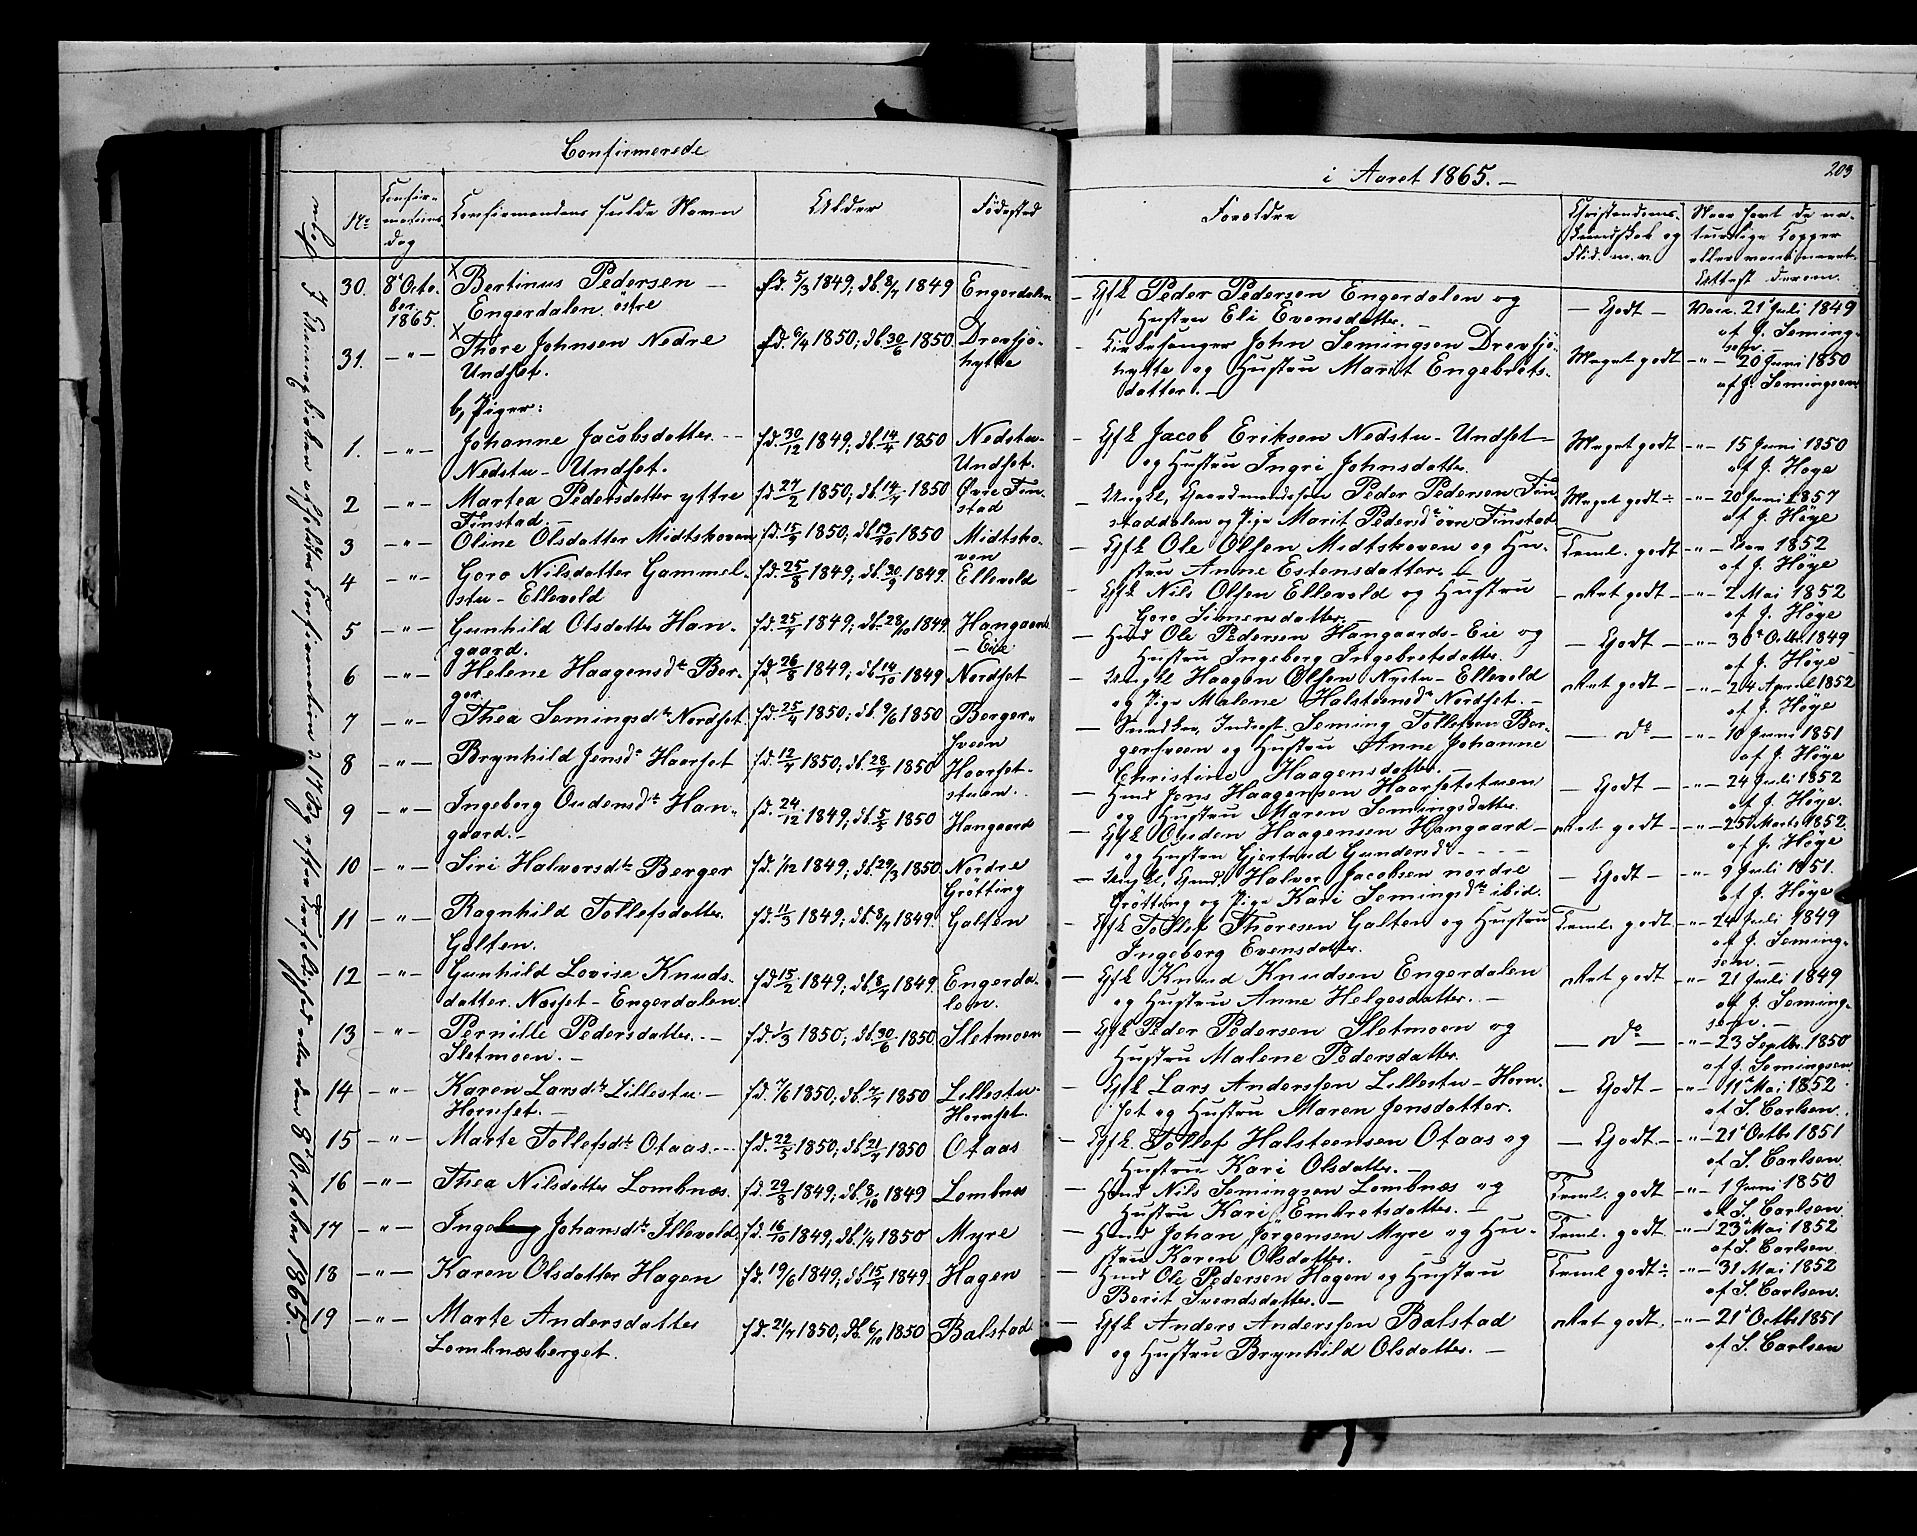 Confirmerede
i Aaret 1865. —
203
No
Confir-
mations
dag
Confirmandens fulde Navn
Alder
Fødested
Forældre
Christendoms-
kundskab og
Flid. m. v.
Naar havt de na-
turlige Kopper
eller vaccineret.
Attest derom.
30. 8de Octo-
ber
1865.
Bertinus Pedersen —
Engerdalen østre
fd. 5/3 1849; db. 8/7 1849
Engerdalen
— Gfk Peder Pedersen Engerdalen og
Hustru Eli Evensdatter. —
— Godt —
Vacc. 21 Juli 1849
af J. Seming-
sen —
31. —"—
Thore Johnsen Nedre
Undset.
fd. 6/4 1850; db 30/6 1850
Drevsjø-
hytte
— Kirkesanger John Semingsen Drevsjø-
hytte og Hustru Marit Engebrets-
datter. —
Meget godt
—"— 20 Juni 1850
af J. Semingsen
b, Piger:
1. —"—
Johanne Jacobsdatter —
Nedstu-Undset.
fd. 30/12 1849; db. 14/4 1850
Nedstu-
Undset.
— Gfk Jacob Eriksen Nedstu-Undset
og Hustru Ingri Johnsdatter.
Meget godt
—"— 15 Juni 1850
af J. Høye
2 —"—
Martea Pedersdatter yttre
Finstad —
fd. 27/2 1850; db. 14/4 1850
Øvre Fin-
stad
— Ungkl, Gaardmandssøn Peder Pedersen Fin
staddalen og Pige Marit Pedersdr øvre Finstad
Meget godt
—"— 20 Juni 1857
af J. Høye
3 —"—
Oline Olsdatter Midtskoven
fd. 15/9 1850; db 13/10 1850
Midtsko-
ven
— Gfk Ole Olsen Midtskoven og Hu-
stru Anne Estensdatter. —
Teml. godt
—"— 1852
af J. Høye
4 —"—
Goro Nilsdatter Gammel-
stu-Ellevold
fd. 25/8 1849; db. 30/9 1849.
Ellevold
— Gfk Nils Olsen Ellevold og Hustru
Goro Simensdatter. —
— Ret godt —
—"— 2 Mai 1852
af J. Høye
5 —"—
Gunhild Olsdatter Han-
gaard.
fd. 25/7 1849; db. 28/10 1849.
Hangaards
— Eie
— Husmd Ole Pedersen Hangaards-Eie og
Hustru Ingeborg Ingebretsdatter.
— Godt —
—"— 30 Octbr 1849
af J. Høye
6 —"—
Helene Haagensdtr Ber-
ger
fd. 26/8 1849; db. 14/10 1849
Nordset
— Ungkl Haagen Olsen Nystu-Ellevold
og Pige Malene Halsteensdr Nordset. —
Ret godt —
—"— 24 April 1852
af J. Høye
7 —"—
Thea Semingsdtr Nordset.
fd. 25/4 1850; db. 9/6 1850
Berger-
sveen
— Snedker, Inderst Seming Tollefsen Ber-
gersveen og Hustru Anne Johanne
Christine Haagensdatter. —
— do —
—"— 10 Juni 1851
af J. Høye
8 —"—
Brynhild Jensdr Haarset
fd. 12/7 1850; db. 28/7 1850
Haarset-
stuen.
— Husmd Jens Haagensen Haarsetstuen
og Hustru Maren Semingsdatter.
— Godt —
—"— 24 Juli 1852
af J. Høye.
9 —"—
Ingeborg Oudensdtr Han-
gaard. —
fd. 24/12 1849; db. 5/5 1850
Hangaard
— Gfk Ouden Haagensen Hangaard —
og Hustru Gjertrud Gundersdr — — —
Ret godt —
—"— 25 Marts 1852.
af J. Høye
10 —"—
Siri Halvorsdtr Berger
fd. 1/12 1849; db. 29/3 1850.
Nordre
Grøtting
— Ungkl, Halvor Jacobsen nordre
Grøtting og Pige Kari Semingsdtr ibid.
— Godt —
—"— 9 Juli 1851.
af J. Høye
11 —"—
Ragnhild Tollefsdatter.
Galten.
fd. 11/3 1849; db. 8/7 1849.
Galten
— Gfk Tollef Thoresen Galten og Hustru
Ingeborg Evensdatter.
Teml. godt
—"— 24 Juli 1849
af J. Seming-
sen. —
12 —"—
Gunhild Lovise Knuds-
datter. Næset-Engerdalen.
fd. 15/2 1849; db. 8/7 1849.
Engerda-
len.
— Gfk Knud Knudsen Engerdalen
og Hustru Anne Helgesdatter. —
Ret godt
—"— 21 Juli 1849
af J. Seming-
sen. —
13 —"—
Pernille Pedersdatter. —
Sletmoen. —
fd. 1/3 1850; db. 30/6 1850.
Sletmoen
— Gfk Peder Pedersen Sletmoen og
Hustru Malene Pedersdatter.
— do —
—"— 23 Septbr. 1850
af J. Semingsen.
14 —"—
Karen Larsdtr Lillestu —
Hornset. —
fd. 7/6 1850; db. 7/7 1850
Lillestu-
Hornset.
— Gfk Lars Anderssen Lillestu-Horn-
set og Hustru Maren Jensdatter.
— Godt —
—"— 11 Mai 1852.
af S. Carlsen.
15 —"—
Marte Tollefsdtr Otaas. —
fd. 22/5 1850; db. 21/7 1850
Otaas
— Gfk. Tollef Halsteensen Otaas og
Hustru Kari Olsdatter. —
— Godt —
—"— 21 Octbr 1851
af S. Carlsen.
16 —"—
Thea Nilsdatter Lombnæs.
fd. 29/8 1849; db. 8/10 1849
Lombnæs
— Husmd Nils Semingsen Lombnæs og
Hustru Kari Embretsdatter. —
Teml. godt
—"— 1 Juni 1850
af S. Carlsen.
17 —"—
Johansdtr Ellevold.
fd. 16/10 1849; db. 1/4 1850
Myre
— Husmd Johan Jørgensen Myre og Hu-
stru Karen Olsdatter.
Teml. godt.
—"— 23 Mai 1852
af S. Carlsen.
18 —"—
Karen Olsdatter Hagen
fd. 19/6 1849; db 15/7 1849.
Hagen
— Husmd Ole Pedersen Hagen og Hustru
Berit Svendsdatter. —
Teml godt
—"— 31 Mai 1852
af S. Carlsen.
19 —"—
Marte Andersdatter
Lombnæsberget.
fd. 21/7 1850; db. 6/10 1850
Balstad
— Gfk Anders Anderssen Balstad
og Hustru Brynhild Olsdatter. —
Ret godt.
—"— 21 Octbr 1851
af S. Carlsen